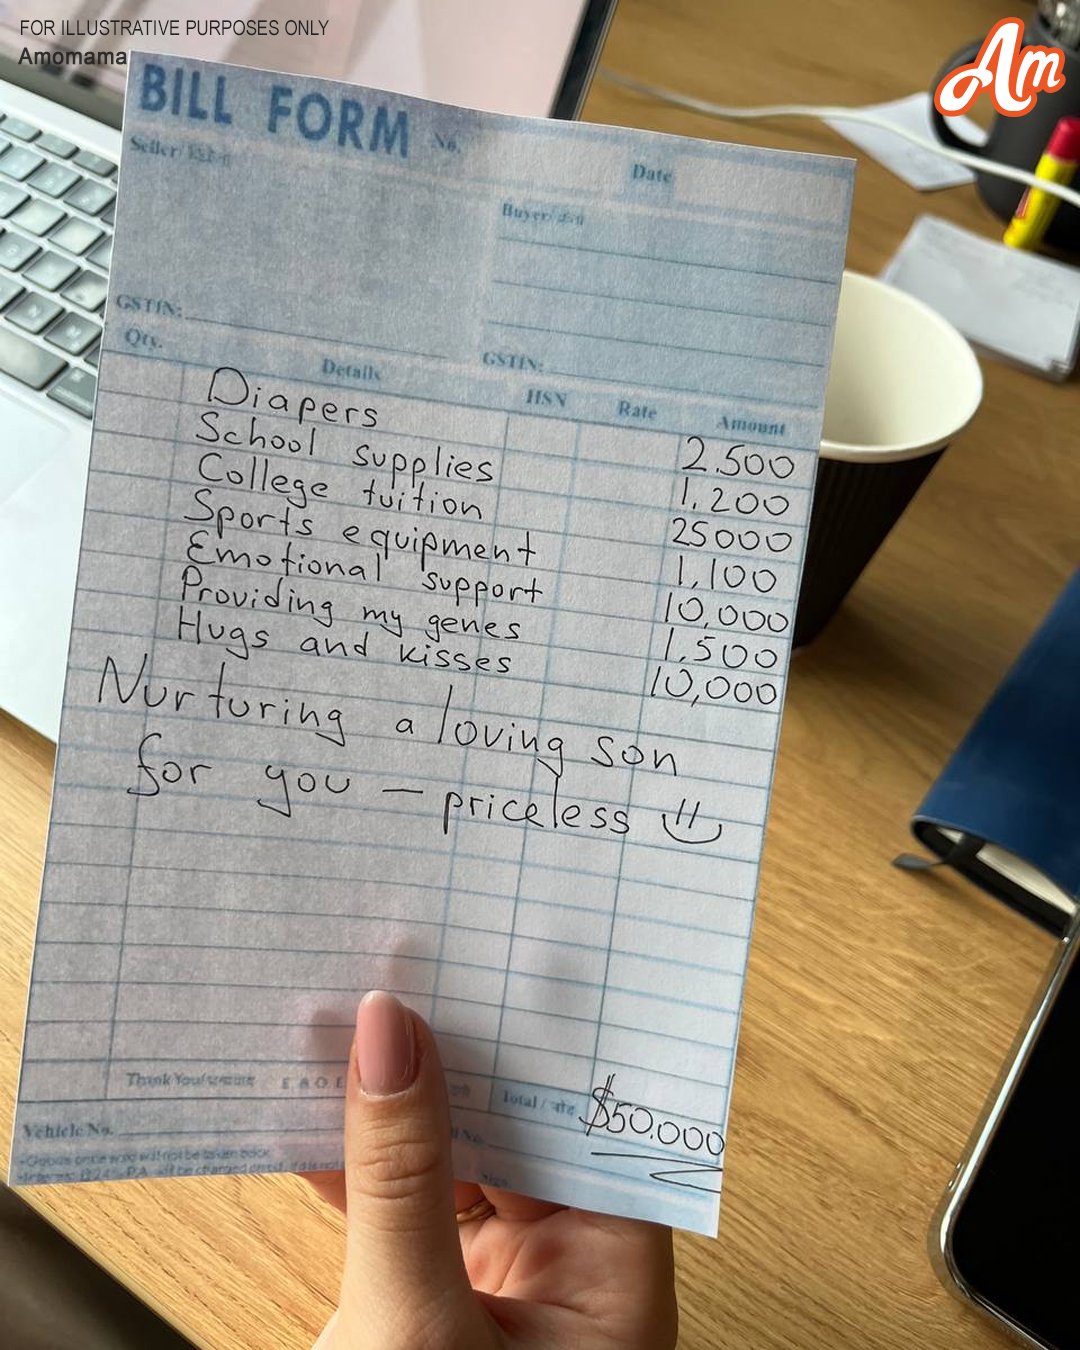 FOR ILLUSTRATIVE PURPOSES ONLY
Amomama
Am
BILL FORM No.
Seller/
Date
Buyer/
GSTIN:
GSTIN:
Qty. Details HSN Rate Amount
Diapers 2.500
School supplies 1.200
College tuition 25000
Sports equipment 1,100
Emotional support 10,000
Providing my genes 1,500
Hugs and kisses 10,000
Nurturing a loving son
for you — priceless
Thank You/ E & O E
Total / $50.000
Vehicle No.
Sign.